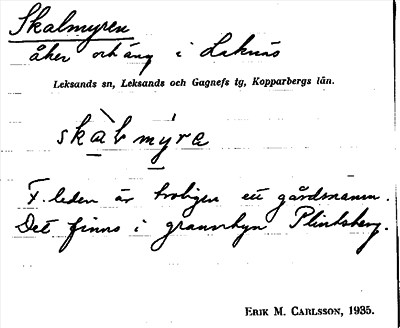 Skalmyren
åker och äng i Laknäs
Leksands sn, Leksands och Gagnefs tg, Kopparbergs län.
skàlmýra
F. leden är troligen ett gårdsnamn.
Det finns i grannbyn Plintsberg.
ERIK M. CARLSSON, 1935.